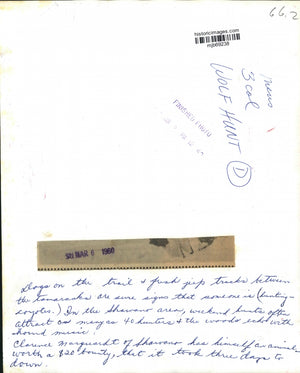 66.2
historicimages.com
mjb69238
news
3 col
WOLF HUNT D
FINISHED PHOTO
SUN MAR 6 1960
Dogs on the trail & fresh jeep tracks between
the tamaracks are sure signs that someone is (hunting
coyotes.) In the Shawano area, weekend hunts often
attract as many as 40 hunters & the woods echo with
hound music.
Clarence Marquardt of Shawano has himself a animal
worth a $20 bounty, that it took three days to
down.